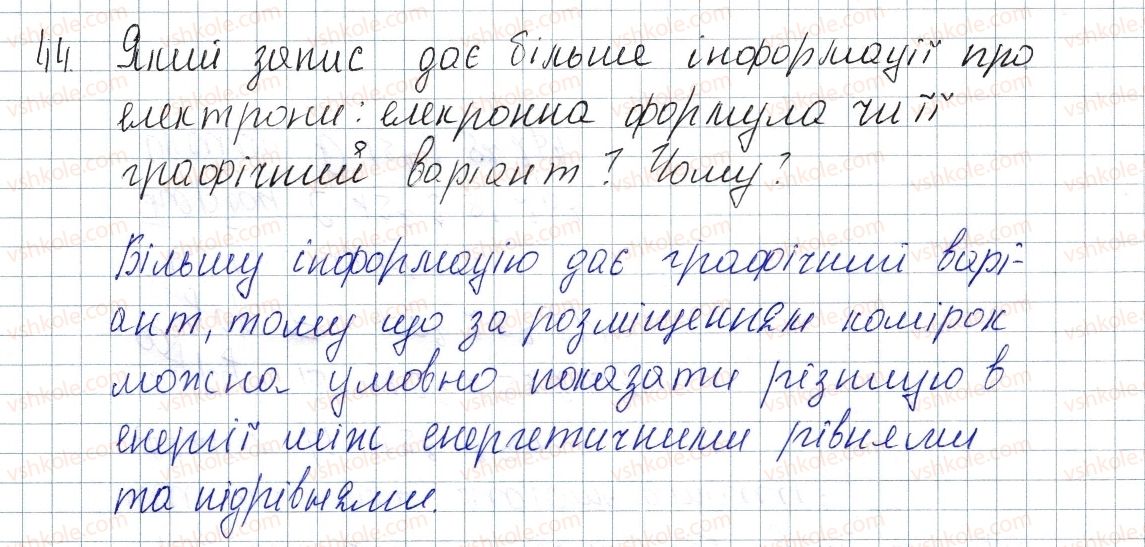 44. Який запис дає більше інформації про
електрони: елекронна формула чи її
графічний варіант? Чому?
Більшу інформацію дає графічний варі-
ант, тому що за розміщенням комірок
можна умовно показати різницю в
енергії між енергетичними рівнями
та підрівнями.